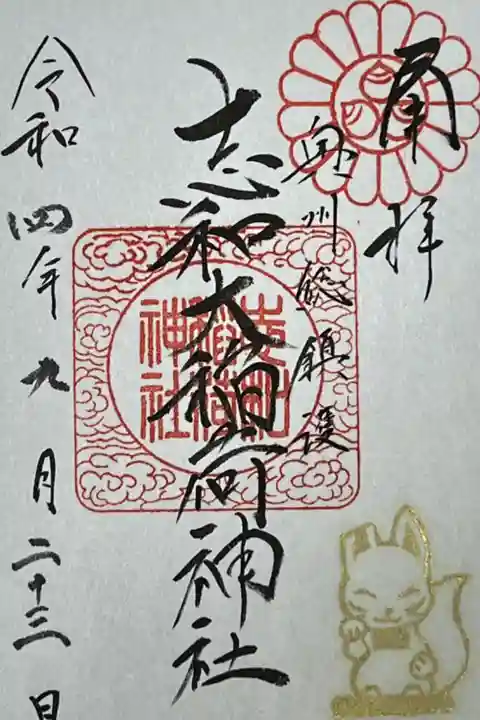 奉拝
奥州総鎮護
志和大稲荷神社
志和稲荷神社
令和四年九月二十三日